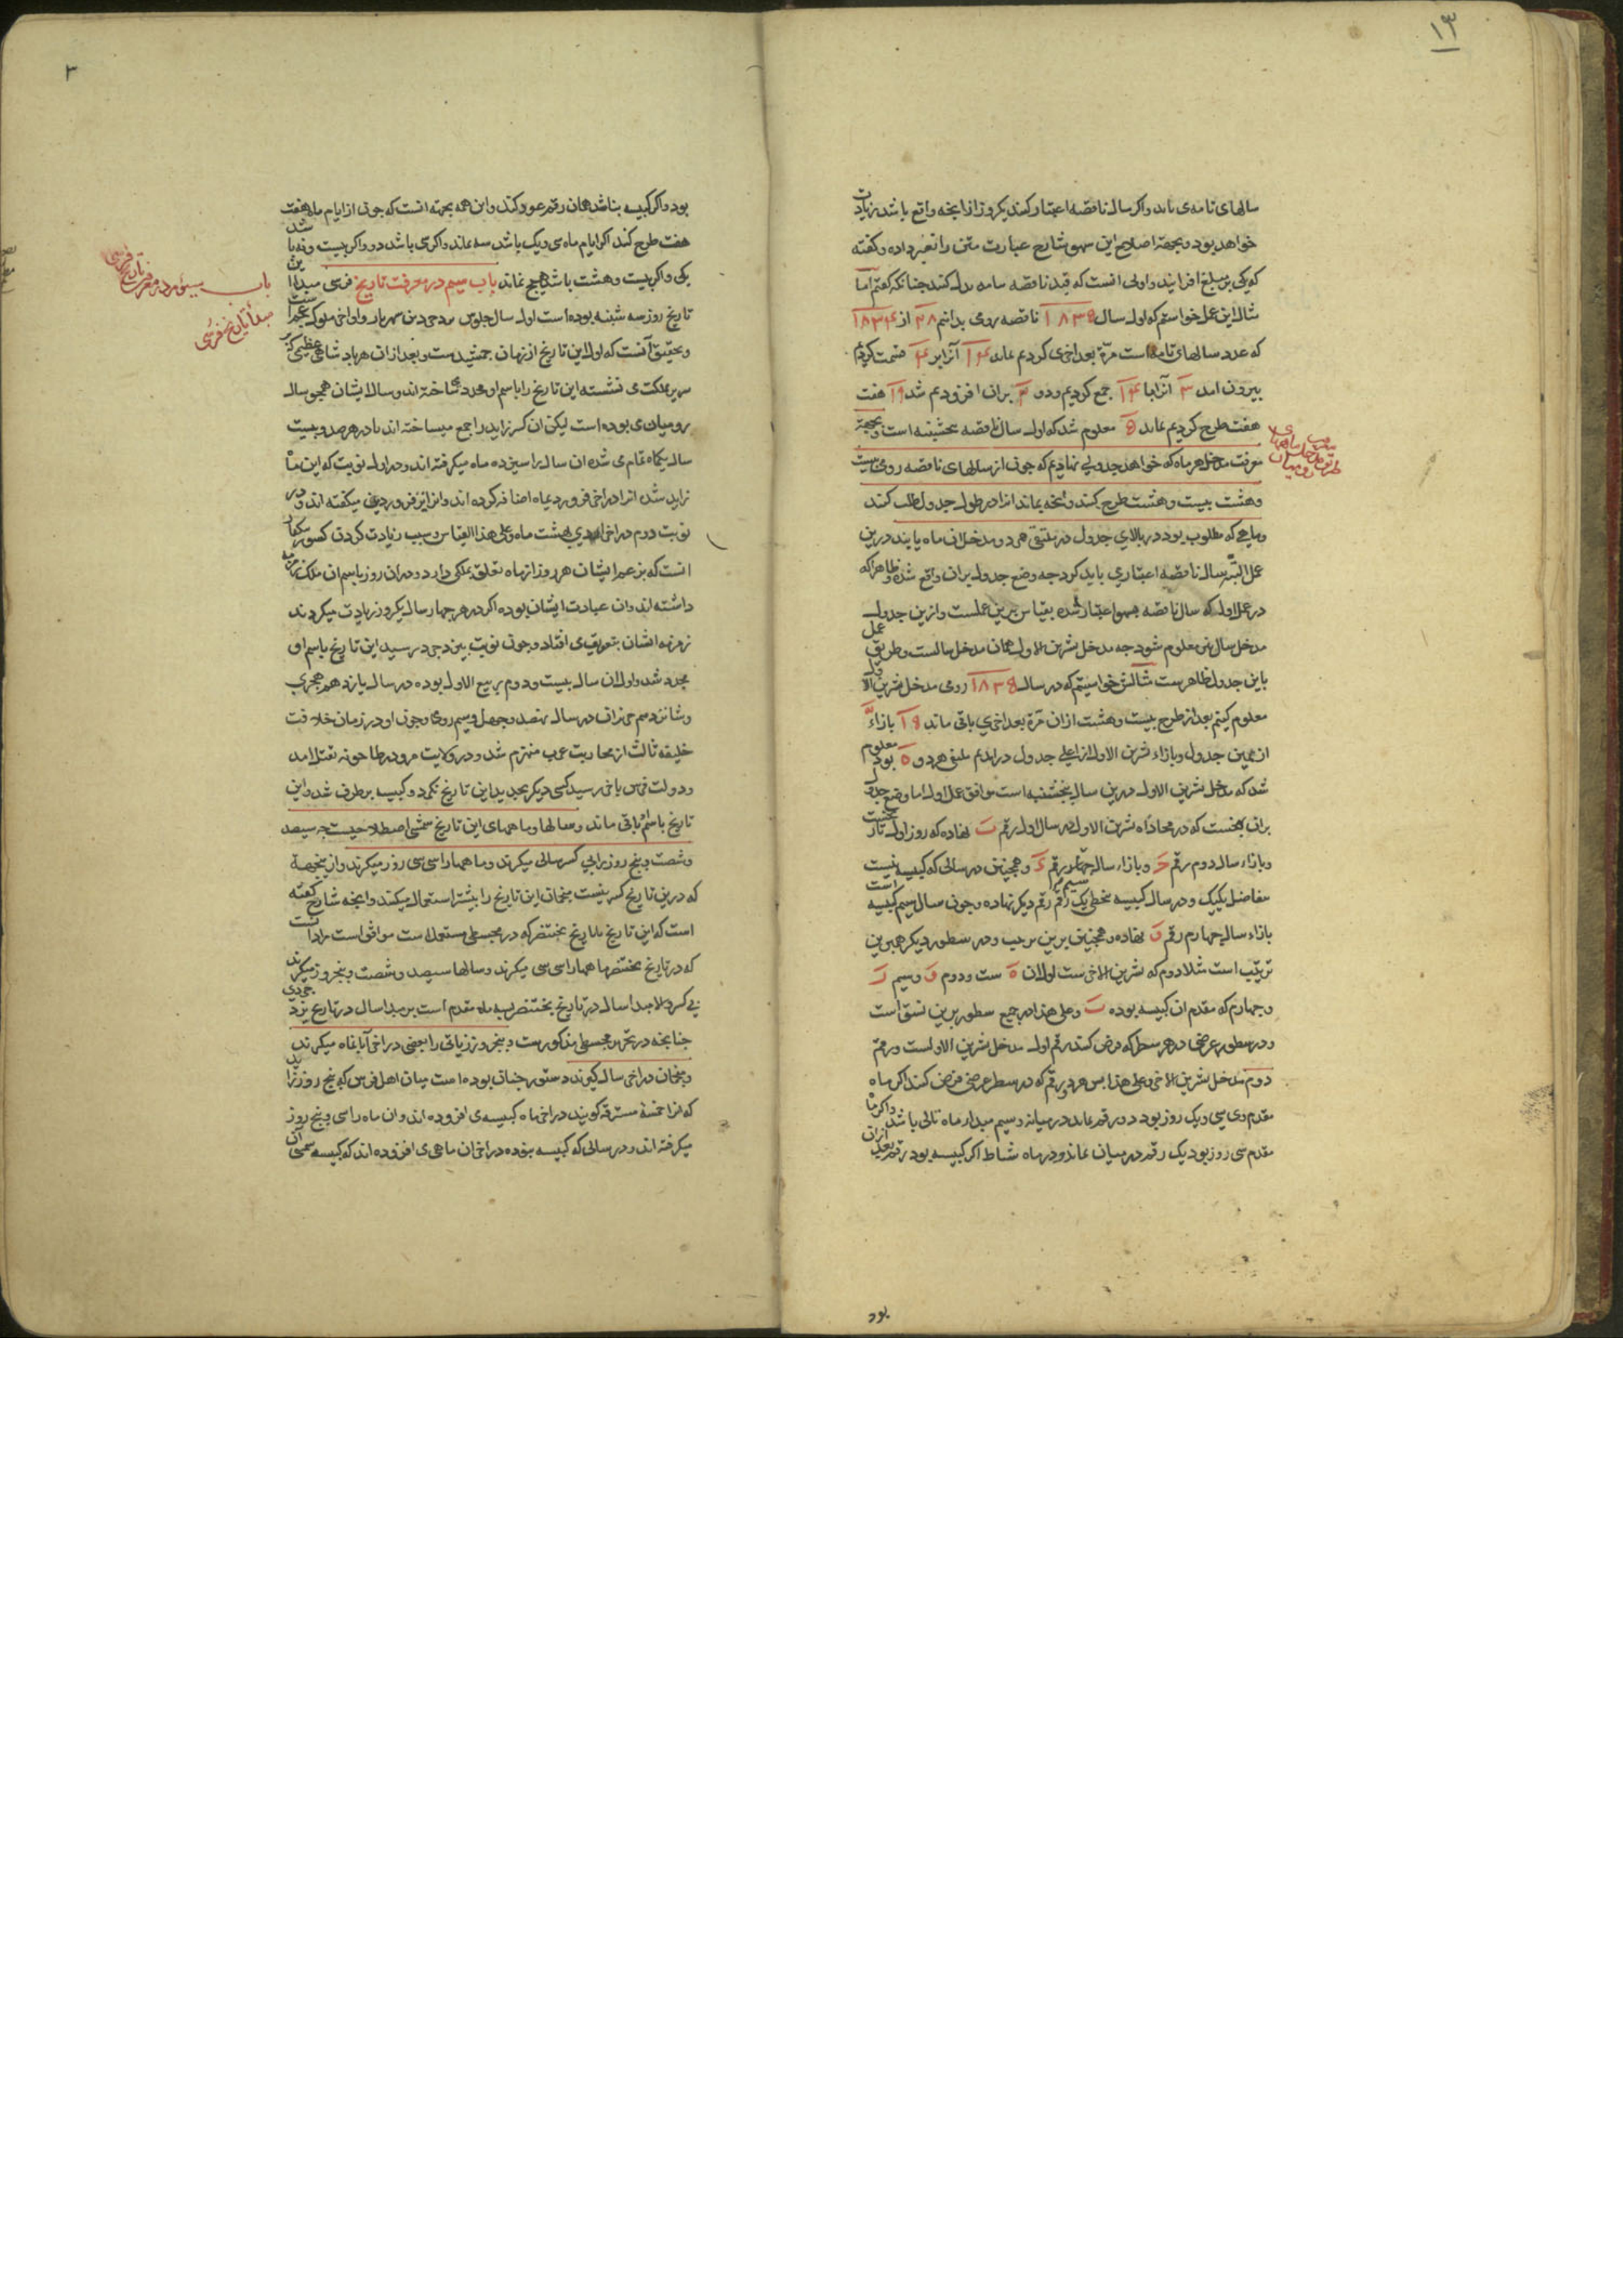 ۱۳
سالهای تامه می باید و اگر سال ناقصه اعتبار کنند یکروز از آنچه واقع باشد زیادت
خواهد بود و بجهة اصلاح این سهو شارح عبارت متن را تغییر داده و گفته
که یکی بر مبلغ افزایند و اولی آنست که قید ناقصه بتامه بدل کنند چنانکه گفتیم اما
مثال این عمل خواستیم که اول سال ۱۸۳۵ ناقصه رومی بدانیم ۲۸ از ۱۸۳۴
که عدد سالهای تامه است مرّة بعد اخری کردیم ماند ۱۴ آنرا بر ۴ قسمت کردیم
بیرون امد ۳ آنرا با ۱۴ جمع کردیم و دو ۲ بران افزودیم شد ۱۹ هفت
هفت طرح کردیم ماند ۵ معلوم شد که اول سال ناقصه پنجشنبه است و بجهة
معرفت مدخل هر ماه که خواهد جدولی نهادیم که چون از سالهای ناقصه رومی بیست
وهشت بیست و هشت طرح کنند و انچه بماند انرا در طول جدول طلب کنند
و ماهی که مطلوب بود در بالای جدول در ملتقی هر دو مدخل ان ماه یابند درین
عمل البتّه سال ناقصه اعتبار می باید کرد چه وضع جدول بران واقع شده و ظاهرا که
در عمل اول که سال ناقصه بسهو اعتبار شده بقیاس برین عملست و ازین جدول
مدخل سال نیز معلوم شود چه مدخل تشرین الاول همان مدخل سالست و طریق عمل
باین جدول ظاهرست مثالش خواستیم که در سال ۱۸۳۵ رومی مدخل تشرین الاول
معلوم کنیم بعد از طرح بیست وهشت ازان مرّة بعد اخری باقی ماند ۱۵ بازاء
از همین جدول و بازاء تشرین الاول از اعلی جدول درامدیم ملتقی هر دو ه بود معلوم
شد که مدخل تشرین الاول درین سال پنجشنبه است موافق عمل اول اما وضع جدول
بازاء سال چهارم رقم و نهاده و همچنین برین ترتیب و در سطور دیگر همین
ترتیب است مثلا دوم که تشرین الاخر ست اول ان ه ست و دوم و وسیم ز
وچهارم که مقدم ان کبیسه بوده ب وعلی هذا در جمیع سطور برین نسق است
ودر سطور عرضی در هر سطر که فرض کنند رقم اول مدخل تشرین الاولست و رقم
دوم مدخل تشرین الاخر وعلی هذا پس هر دو رقم که در سطر عرضی فرض کنند اگر ماه
مقدم سی و یک روز بود دو رقم بماند در میانه و سیم مبدا ماه تالی باشد و اگر ماه
مقدم سی روز بود یک رقم در میان نماند و در ماه شباط اگر کبیسه بود رقم بعد ازان
بود
۳
بود و اگر کبیسه نباشد همان رقم عود کند و این همه بجهة انست که چون از ایام ماه هفت
هفت طرح کنند اگر ایام ماه سی و یک باشد سه بماند و اگر سی باشد دو و اگر بیست و نه باشد
یکی و اگر بیست و هشت باشد هیچ نماند باب سیم در معرفت تاریخ فرس مبدا این
تاریخ روز سه شنبه بوده است اول سال جلوس یزدجرد بن شهریار و او اخر ملوک عجم است
و تحقیق آنست که اول این تاریخ از زمان جمشیدست و بعد ازان هر پادشاهی عظیم که بر
سریر مملکت می نشسته این تاریخ را باسم او مجدد میساخته اند و سال ایشان همچو سال
رومیان می بوده است لیکن ان کسر زاید را جمع میساخته اند تا در هر صد و بیست
سال یکماه تمام می شده ان سال را سیزده ماه میگرفته اند و در اول نوبت که این ماه
زاید شد انرا در اخر فروردیماه اضافه کرده اند و انرا نیز فروردین میگفته اند و در
نوبت دوم در اخر اردیبهشت ماه وعلی هذا القیاس و سبب زیادت کردن کسور یکبار
انست که بزعم ایشان هر روز از ماه تعلق بملکی دارد و دران روز باسم ان ملک زمزمه
داشته اند و ان عبادت ایشان بوده اگر در هر چهار سال یکروز زیادت میکردند
زمزمه ایشان بتعویق می افتاد و چون نوبت یزدجرد رسید این تاریخ باسم او
مجدد شد و اول ان سال بیست و دوم ربیع الاول بوده در سال یازدهم هجری
وشانزدهم حزیران در سال نهصد و چهل و سیم رومی و چون او در زمان خلافت
خلیفه ثالث از محاربت عرب منهزم شد و در ولایت مرو در طاحونه بقتل امد
و دولت فرس باخر رسید کسی دیگر تجدید این تاریخ نکرد و کبیسه برطرف شد و این
تاریخ باسم او باقی ماند و سالها و ماههای این تاریخ شمسی اصطلاحیست چه سیصد
وشصت و پنج روز را بی کسر سالی میگیرند و ماهها را سی سی روز میگیرند و ازینجهة
که درین تاریخ کسر نیست منجمان این تاریخ را بیشتر استعمال میکنند و انچه شارح گفته
است که این تاریخ با تاریخ بختنصر که در مجسطی مستعمل است موافق است مراد انست
که در تاریخ بختنصر ماهها را سی سی میگیرند و سالها سیصد و شصت و پنجروز میگیرند
بی کسر و الا مبدا سال در تاریخ بختنصر بسه ماه مقدم است بر مبدا سال در تاریخ یزدجردی
چنانچه در تحریر مجسطی مذکورست و پنجروز زیاتی را بعضی در اخر آبانماه میگیرند
ومنجمان در اخر سال گیرند دستور چنان بوده است میان اهل فرس که پنج روز زاید
که انرا خمسهٔ مسترقه گویند در اخر ماه کبیسه می افزوده اند و ان ماه را سی و پنج روز
میگرفته اند و در سالی که کبیسه بوده در اخر ان ماهی می افزوده اند که کبیسه
باب سیوم در معرفت تاریخ فرس
مبدأ تاریخ فرس